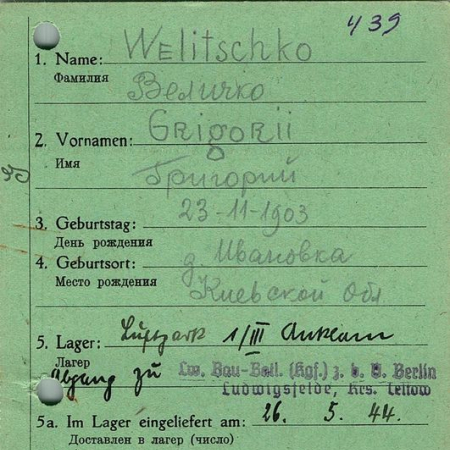 439
1. Name: Welitschko
Фамилия Величко
2. Vornamen: Grigorii
Имя Григорий
3. Geburtstag: 23-11-1903
День рождения
4. Geburtsort: д. Ивановка
Место рождения Киевской Обл
5. Lager: Luftpark 1/III Anklam
Лагер
Abgang zu Lw. Bau-Batl. (Kgf.) z. b. V. Berlin
Ludwigsfelde, Krs. Teltow
5a. Im Lager eingeliefert am: 26. 5. 44.
Доставлен в лагер (число)